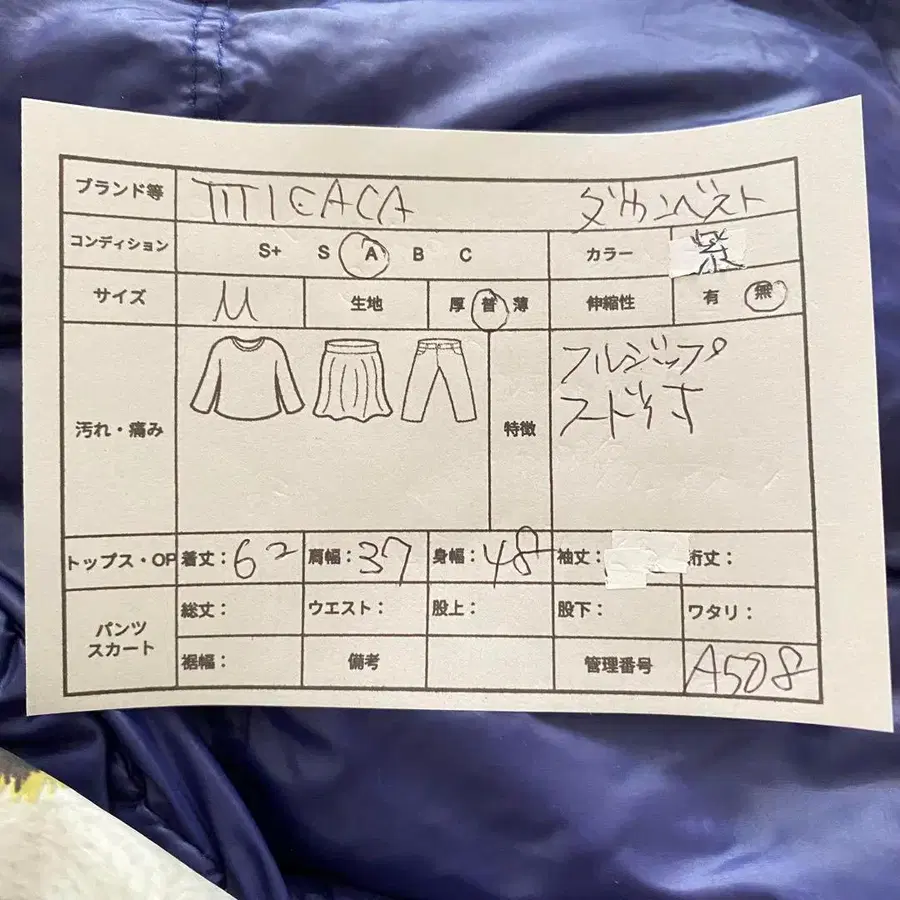 ブランド等 TITICACA ダウンベスト
コンディション S+ S A B C カラー 紫
サイズ M 生地 厚 普 薄 伸縮性 有 無
汚れ・痛み 特徴 フルジップ
フード付
トップス・OP 着丈：62 肩幅：37 身幅：48 袖丈： 裄丈：
パンツ スカート 総丈： ウエスト： 股上： 股下： ワタリ：
裾幅： 備考 管理番号 A508